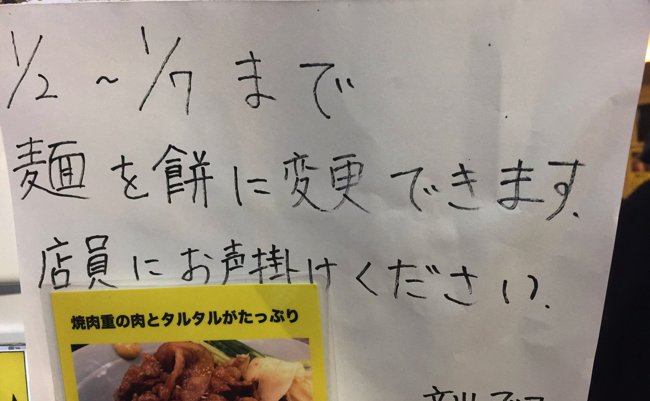 1/2～1/7まで
麺を餅に変更できます.
店員にお声掛けください.
焼肉重の肉とタルタルがたっぷり